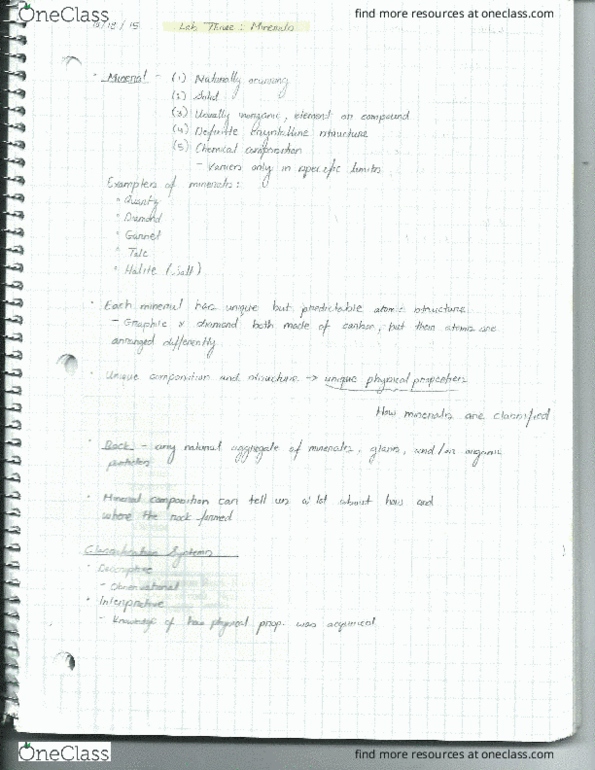 OneClass
find more resources at oneclass.com
/15
Lab Three: Minerals
Mineral - (1) Naturally occurring
(2) Solid
(3) Usually inorganic, element or compound
(4) Definite crystalline structure
(5) Chemical composition
- Varies only in specific limits
Examples of minerals:
Quartz
Diamond
Garnet
Talc
Halite (Salt)
Each mineral has unique but predictable atomic structure
- Graphic & diamond both made of carbon, but their atoms are
arranged differently.
Unique composition and structure → unique physical properties
How minerals are classified
Rock - any natural aggregate of minerals, glass, and/or organic
particles
Mineral composition can tell us a lot about how and
where the rock formed
Classification Systems
Descriptive
- Observational
Interpretive
- Knowledge of how physical prop. was acquired
OneClass
find more resources at oneclass.com